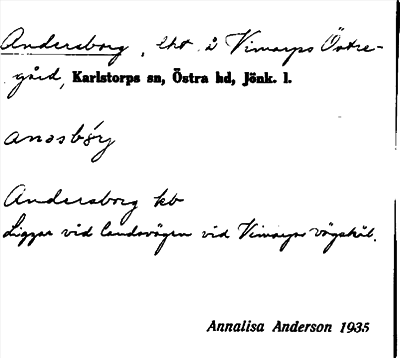 Andersborg, lht å Vimarps Östre-
gård, Karlstorps sn, Östra hd, Jönk. l.
Andersborg kb
Ligger vid landsvägen vid Vimarps vägskäl.
Annalisa Anderson 1935